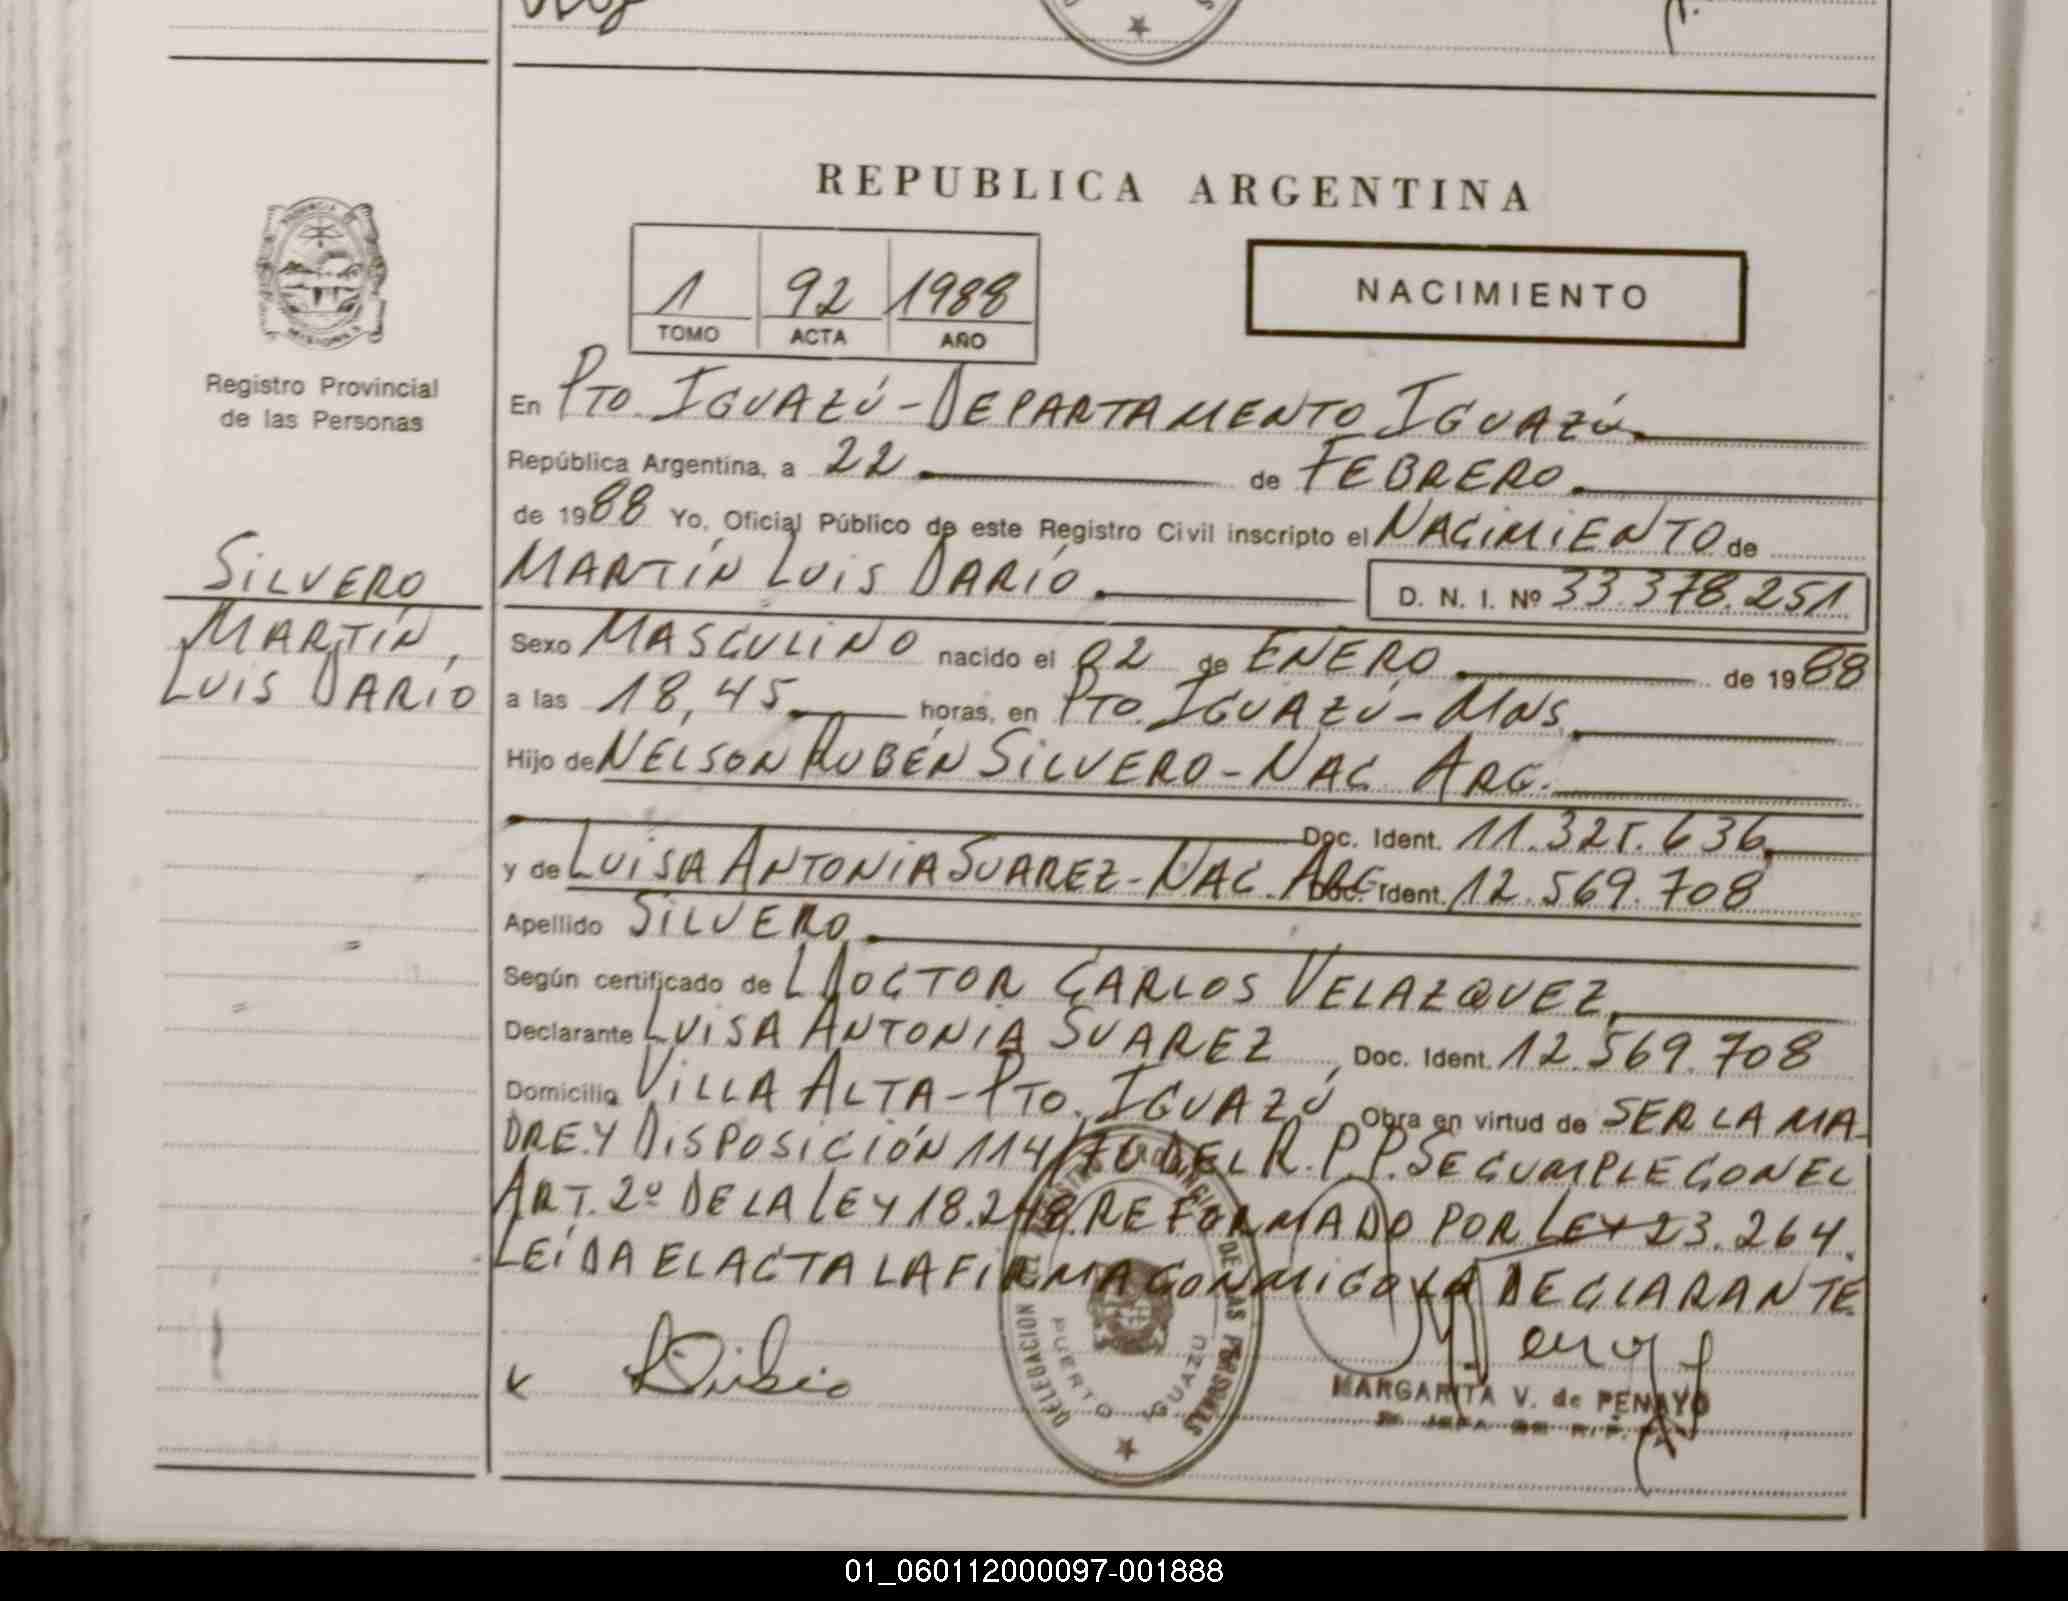 REPUBLICA ARGENTINA
1 92 1988
TOMO ACTA AÑO
NACIMIENTO
Registro Provincial
de las Personas
SILVERO
MARTÍN,
LUIS DARÍO
En PTO. IGUAZÚ - DEPARTAMENTO IGUAZÚ
República Argentina, a 22 de FEBRERO
de 1988 Yo, Oficial Público de este Registro Civil inscripto el NACIMIENTO de
MARTÍN LUIS DARÍO D. N. I. Nº 33.378.251
Sexo MASCULINO nacido el 02 de ENERO de 1988
a las 18,45 horas, en PTO. IGUAZÚ - MNS.
Hijo de NELSON RUBÉN SILVERO - NAC. ARG.
Doc. Ident. 11.325.636
y de LUISA ANTONIA SUAREZ - NAC. ARG Doc. Ident. 12.569.708
Apellido SILVERO
Según certificado de L DOCTOR CARLOS VELAZQUEZ
Declarante LUISA ANTONIA SUAREZ, Doc. Ident. 12.569.708
Domicilio VILLA ALTA - PTO. IGUAZÚ Obra en virtud de SER LA MA-
DRE Y DISPOSICIÓN 114/70 DEL R. P. P. SE CUMPLE CON EL
ART. 2º DE LA LEY 18.248 REFORMADO POR LEY 23.264.
LEÍDA EL ACTA LA FIRMA CONMIGO LA DECLARANTE
DELEGACION DE LAS PERSONAS
PUERTO IGUAZU
MARGARITA V. de PENAYO
01_060112000097-001888